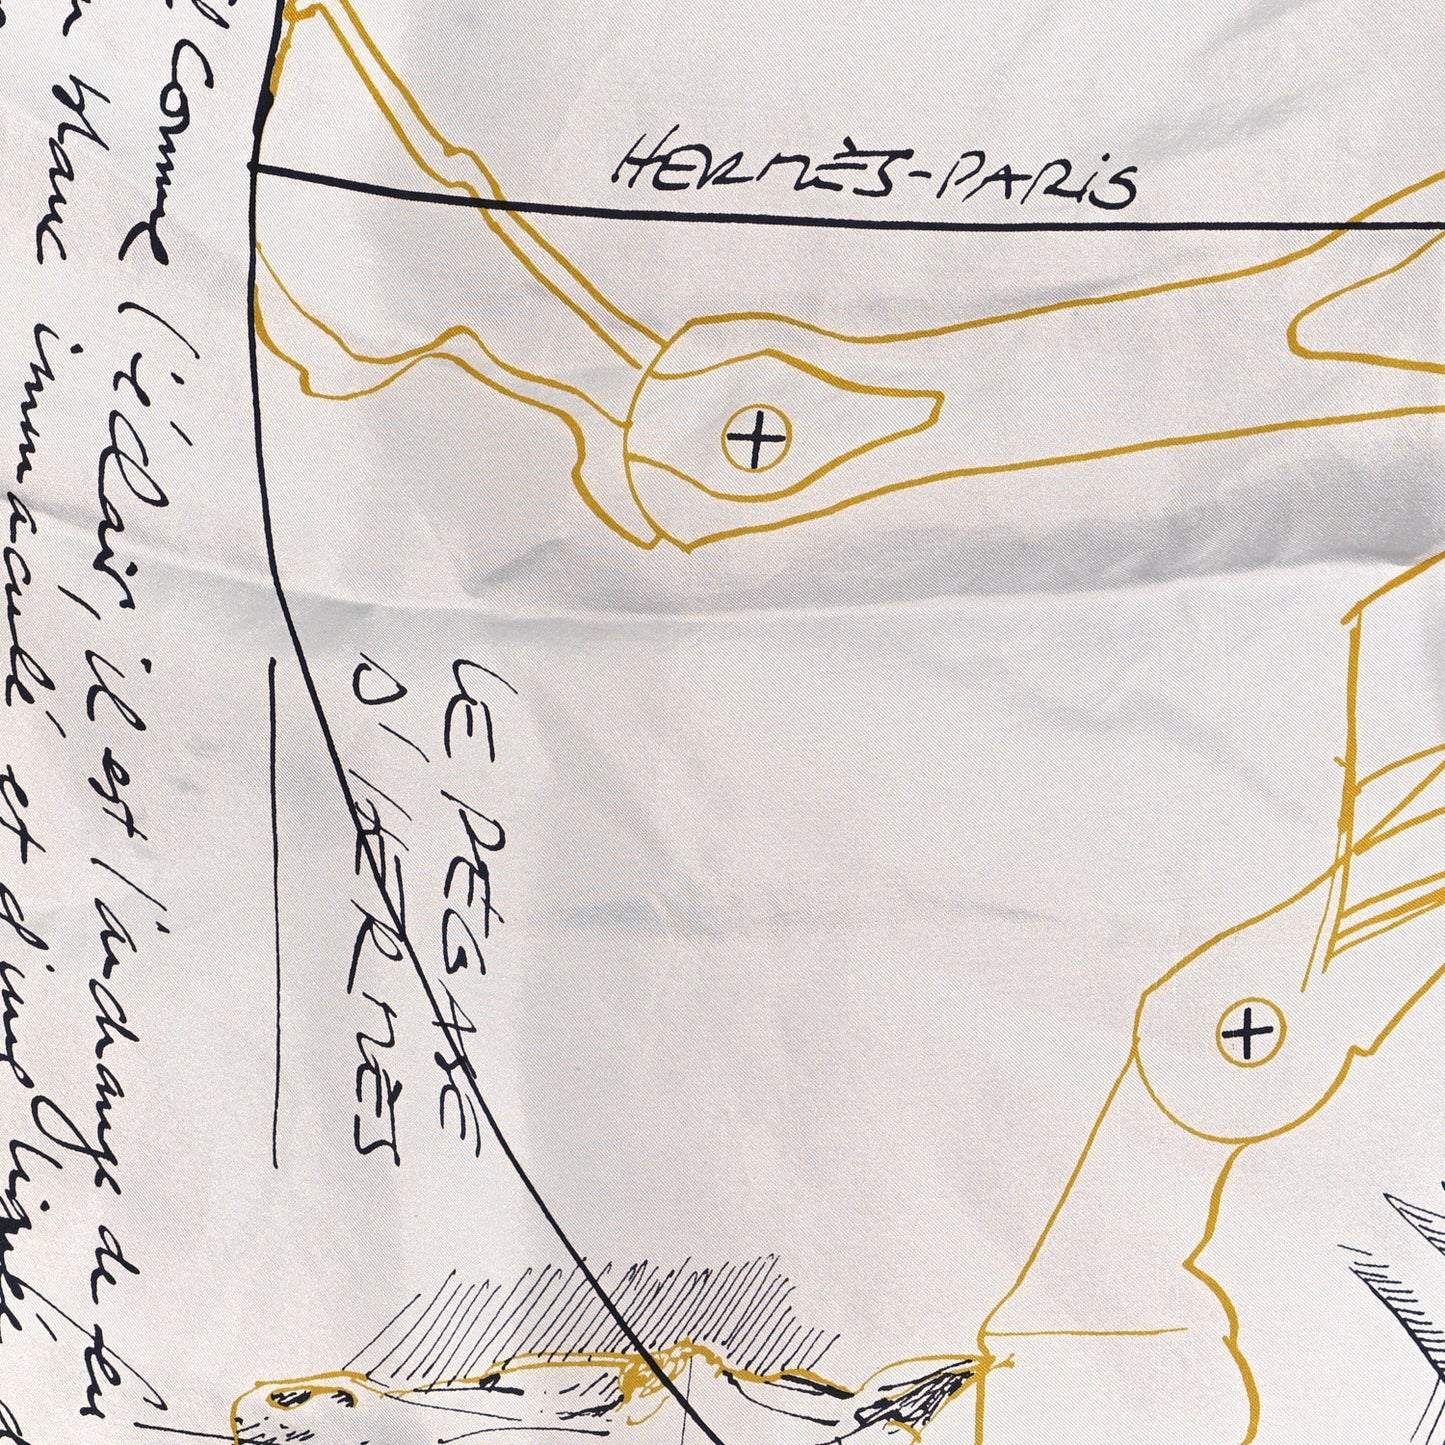 HERMÈS-PARIS
LE PEGASE
D'HERMÈS
Comme l'éclair, il est l'archange de feu
blanc immaculé et d'une lignée